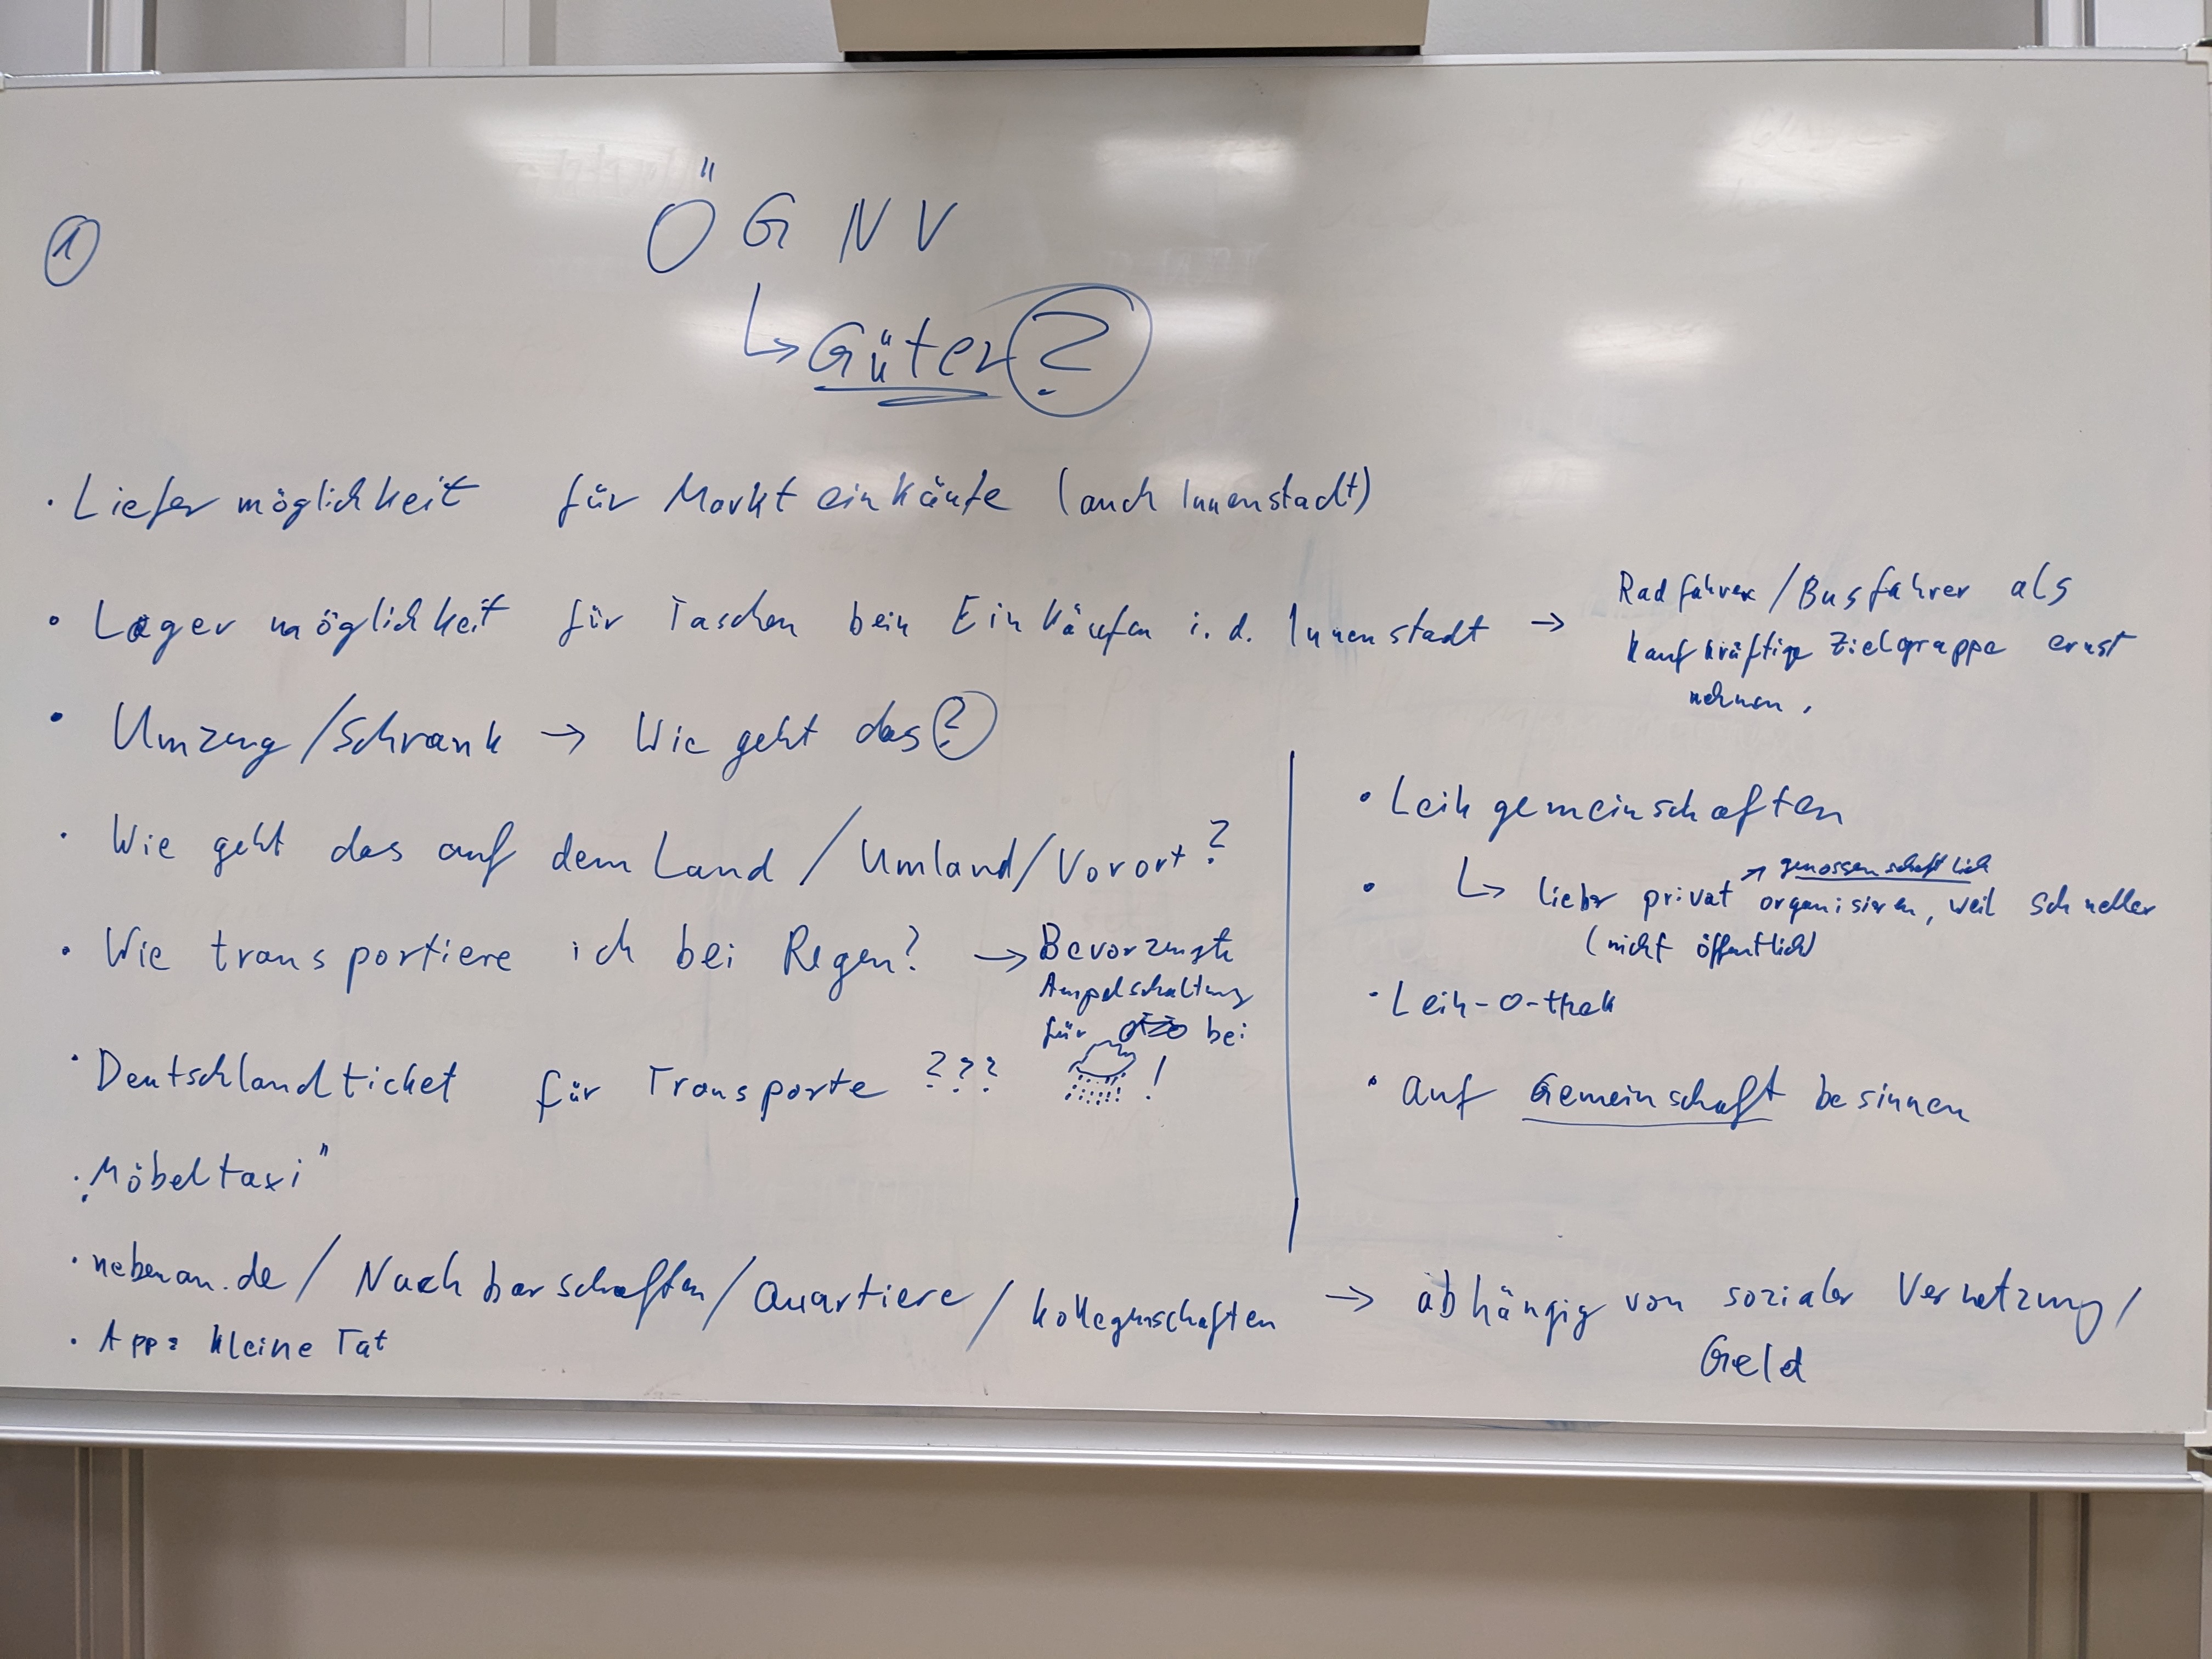 ①
Ö G N V
↳ Güter ?
· Liefermöglichkeit für Markteinkäufe (auch Innenstadt)
· Lagermöglichkeit für Taschen beim Einkäufen i. d. Innenstadt →
Radfahrer/Busfahrer als
kaufkräftige Zielgruppe ernst
nehmen.
· Umzug/Schrank → Wie geht das ?
· Wie geht das auf dem Land / Umland/Vorort?
· Wie transportiere ich bei Regen? → Bevorzugte
Ampelschaltung
für bei
!
· Deutschlandticket für Transporte ???
· „Möbeltaxi"
· nebenan.de / Nachbarschaften/Quartiere / Kollegenschaften → abhängig von sozialer Vernetzung/
Geld
· App: Kleine Tat
· Leihgemeinschaften
→ genossenschaftlich
· ↳ lieber privat organisieren, weil schneller
(nicht öffentlich)
· Leih-o-thek
· Auf Gemeinschaft besinnen